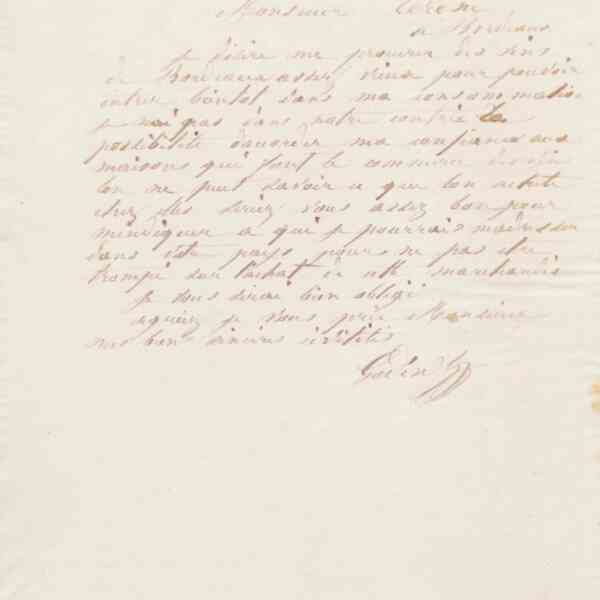 Monsieur
à Bordeaux
je désire me procurer des vins
de Bordeaux assez vieux pour pouvoir
entrer bientot dans ma consommation
je n'ai pas dans notre contrée la
possibilité d'accorder ma confiance aux
maisons qui font le commerce des vin
lon ne peut savoir ce que lon achete
chez eux seriez vous assez bon pour
mindiquer a qui je pourrais madresser
dans votre pays pour ne pas etre
trompé sur lachat de cette marchandise
je vous serai bien obligé
agréez je vous prie Monsieur
mes bonnes sincères civilités
Godin